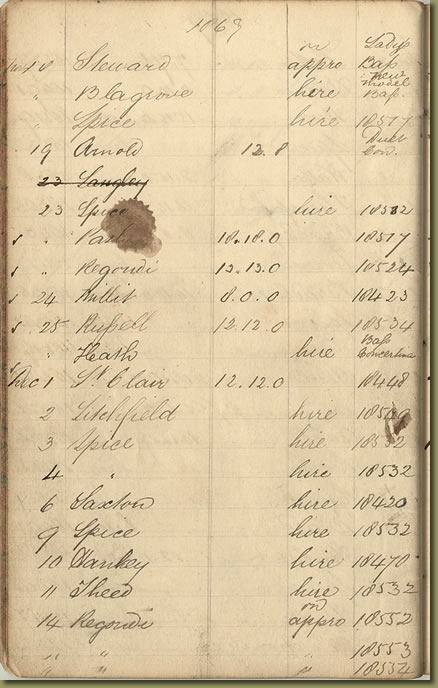 1863
Novr 18 Steward on appro Ladys Bass
" Blagrove hire new model Bass
" Spice hire 18577
19 Arnold 12.8 Duet Con.
23 Langley
23 Spice hire 18532
✓ " 18.18.0 18517
✓ " Regondi 13.13.0 18524
✓ 24 Willis 8.0.0 18423
✓ 25 Russell 12.12.0 18534
" Heath hire Bass Concertina
✓ Dec 1 St Clair 12.12.0 18448
2 Litchfield hire
3 Spice hire 18532
4 " hire 18532
6 Saxton hire 18420
9 Spice hire 18532
10 Hankey hire 18470
11 Theed hire 18532
14 Regondi on appro 18552
" " 18553
" " " 18554